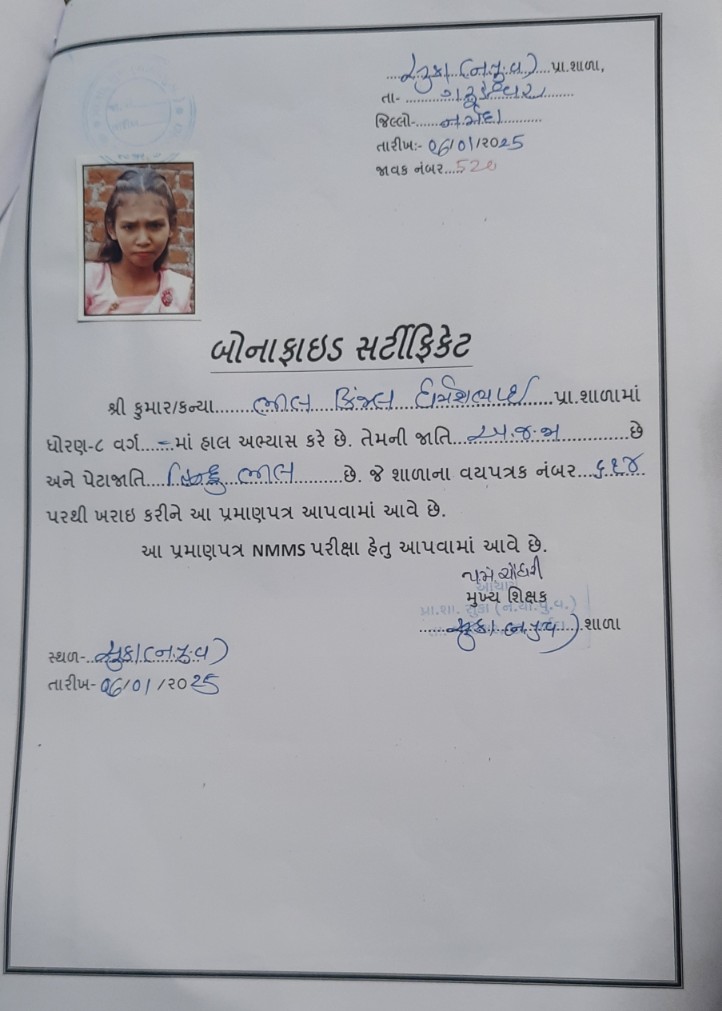 સુકા (ન.પુ.વ) પ્રા.શાળા,
તા- ગરૂડેશ્વર
જિલ્લો- નર્મદા
તારીખ:- 06/01/2025
જાવક નંબર.....520
બોનાફાઇડ સર્ટીફિકેટ
શ્રી કુમાર/કન્યા ભીલ કિંજલ પ્રા.શાળામાં
ધોરણ-૮ વર્ગ - માં હાલ અભ્યાસ કરે છે. તેમની જાતિ અ.જ.જા છે
અને પેટાજાતિ હિન્દુ ભીલ છે. જે શાળાના વયપત્રક નંબર ૬૧૪
પરથી ખરાઇ કરીને આ પ્રમાણપત્ર આપવામાં આવે છે.
આ પ્રમાણપત્ર NMMS પરીક્ષા હેતુ આપવામાં આવે છે.
ચૌધરી
આચાર્ય
મુખ્ય શિક્ષક
પ્રા.શા. સુકા (ન.પુ.વ.)
સુકા (ન.પુ.વ) શાળા
સ્થળ- સુકા (ન.પુ.વ)
તારીખ- 06/01/2025